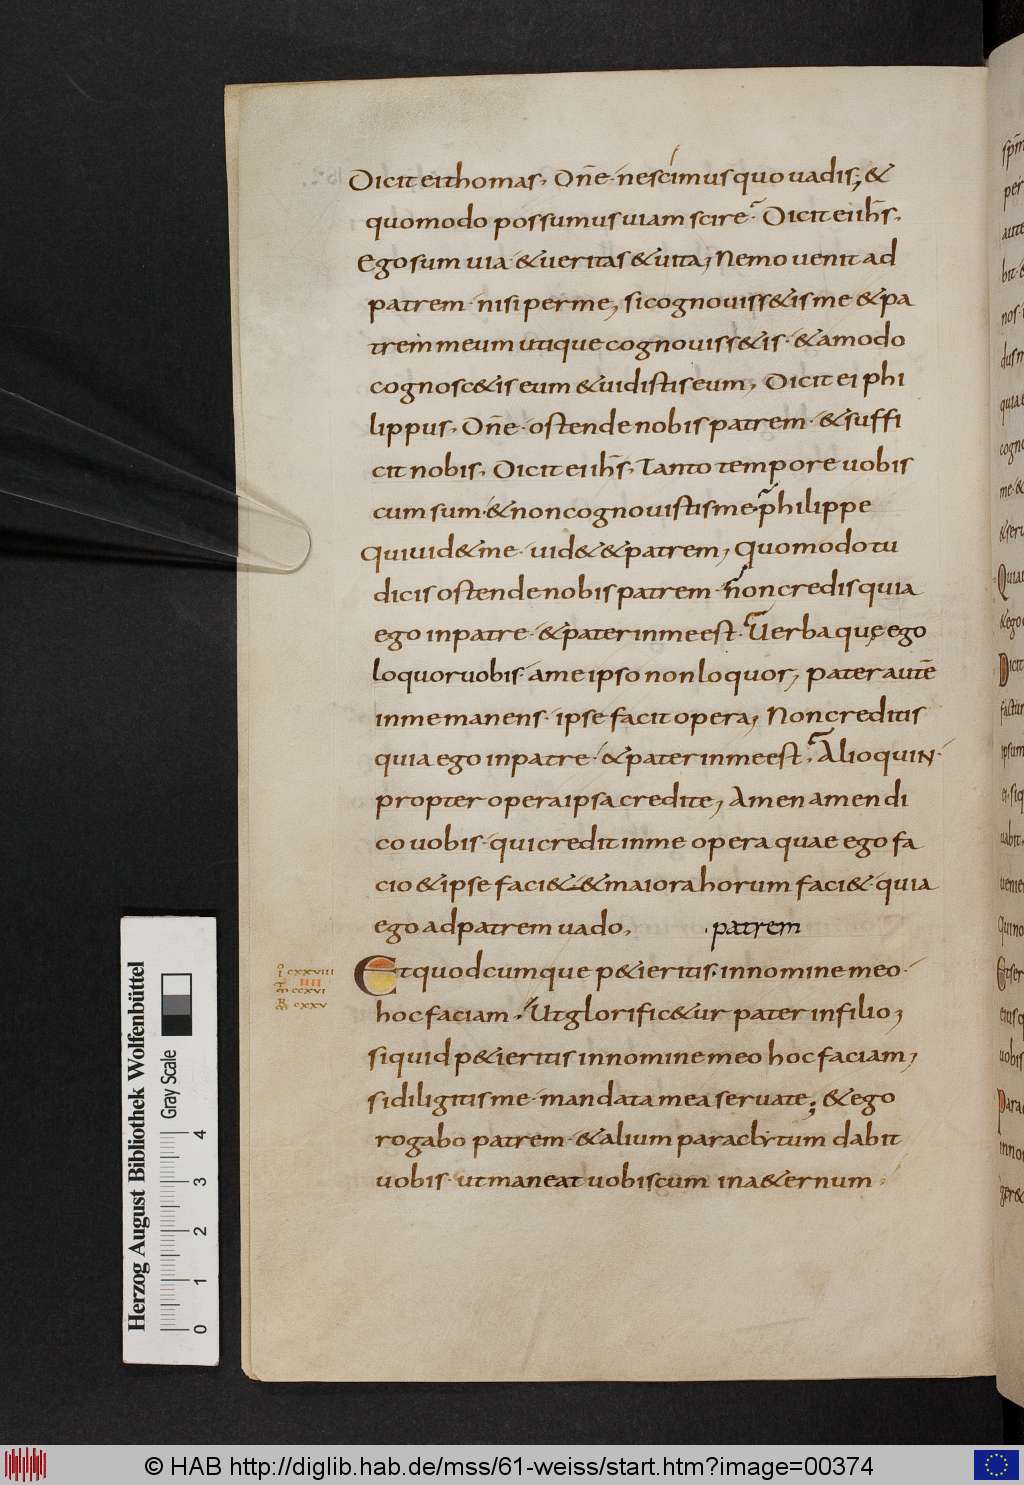 Dicit ei thomas. Dn̄e. nescimus quo uadis; &
quomodo possumus uiam scire? Dicit ei ih̄s.
Ego sum uia & ueritas & uita, Nemo uenit ad
patrem. nisi per me, si cognouiss&is me & pa
trem meum utique cognouiss&is. & amodo
cognosc&is eum & uidistis eum, Dicit ei phi
lippus. Dn̄e. ostende nobis patrem. & suffi
cit nobis. Dicit ei ih̄s. Tanto tempore uobis
cum sum. & non cognouistis me? philippe
Qui uid& me. uid& & patrem, Quomodo tu
dicis ostende nobis patrem. non credis quia
ego in patre. & pater in me est? Uerba quę ego
loquor uobis. a me ipso non loquor, pater autē
in me manens. ipse facit opera, Non creditis
quia ego in patre. & pater in me est? Alioquin.
propter opera ipsa credite, Amen amen di
co uobis. qui credit in me opera quae ego fa
cio & ipse faci&. & maiora horum faci&. quia
ego ad patrem uado,
.patrem
Et quodcumque p&ieritis. in nomine meo.
hoc faciam. Ut glorific&ur pater in filio,
si quid p&ieritis in nomine meo hoc faciam,
si diligitis me. mandata mea seruate; & ego
rogabo patrem. & alium paraclytum dabit
uobis. ut maneat uobiscum in a&ernum.
CXXVIII
IIII
CCXVI
CXXV
Herzog August Bibliothek Wolfenbüttel
Gray Scale
0 1 2 3 4
© HAB http://diglib.hab.de/mss/61-weiss/start.htm?image=00374